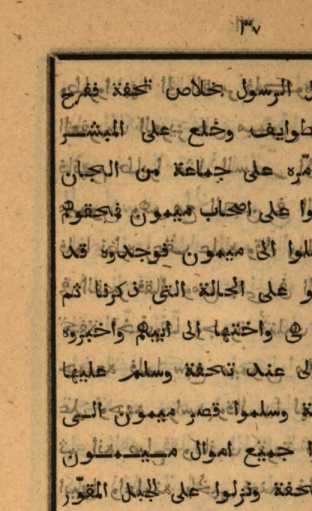 ٣٧
الرسول بخلاص تحفة ففرح
طوايف وخلع على المبشر
على جماعة من الجان
على اصحاب ميمون فمحقوهم
الى ميمون فوجدوه قد
على الحالة التى ذكرنا ثم
واختها الى ابيهم واخبروه
عند تحفة وسلم عليها
وسلموا قصر ميمون الى
جميع اموال ميمون
ونزلوا على الجبل المقور